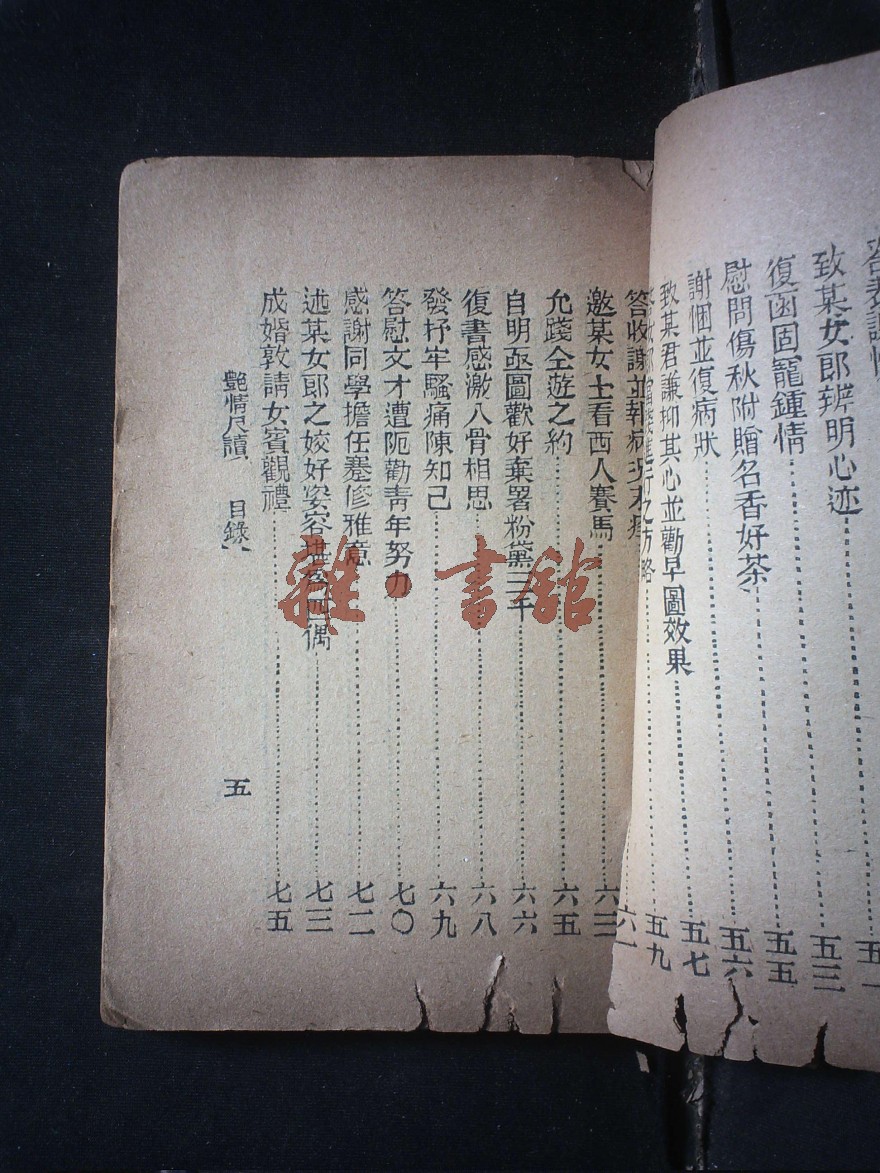 致某女郎辨明心迹 五三
復函固寵鍾情 五五
慰問傷秋附贈名香好茶 五六
謝悃並復病狀 五七
致某君謙抑其心並勸早圖效果 五九
答收謝並報病 六一
邀某女士看西人賽馬 六三
允踐仝遊之約 六五
自明亟圖歡好棄置粉黛三千 六六
復書感激入骨相思 六八
發抒牢騷痛陳知己 六九
答慰文才遭阨勸青年努力 七〇
感謝同學擔任蹇修雅意 七二
述某女郎之姣好姿容堪為匹偶 七三
成婚敦請女賓觀禮 七五
艷情尺牘 目錄 五
雜·書館